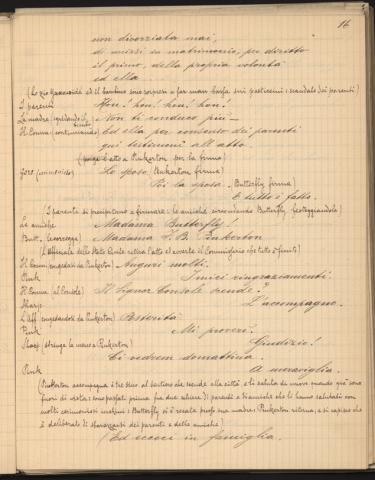 14
non divorziata mai,
di unirsi in matrimonio, per diritto
il primo, della propria volontà
ed ella
(Lo zio Yakusidé ed il bambino sono sorpresi a far man bassa sui pasticcini: scandalo dei parenti)
I parenti Hou! hou! hou! hou!
La madre (sgridando il bimbo) Non ti conduco più—
Il Comm. (continuando) Ed ella per consenso dei parenti
qui testimoni all'atto.
(porge l'atto a Pinkerton per la firma)
Goro (cerimonioso) Lo sposo. (Pinkerton firma)
Poi la sposa. (Butterfly firma)
E tutto è fatto.
(I parenti si precipitano a firmare: le amiche circondano Butterfly, festeggiandola)
Le amiche Madama Butterfly!
Butt. (le corregge) Madama F. B. Pinkerton
(L'Ufficiale dello Stato Civile ritira l'atto ed avverte il Commissario che tutto è finito)
Il Comm. (congedasi da Pinkerton) Auguri molti.
Pink. I miei ringraziamenti.
Il Comm. (al Console) Il Signor Console scende?
Sharp. L'accompagno.
L'Uff. (congedandosi da Pinkerton) Posterità
Pink. Mi proverò.
Sharp. (stringe la mano a Pinkerton) Giudizio!
Ci vedrem domattina.
Pink. A meraviglia.
(Pinkerton accompagna i tre sino al sentiero che scende alla città e li saluta di nuovo quando già sono
fuori di vista: sono passati prima fra due schiere di parenti e di amiche che li hanno salutati con
molti cerimoniosi inchini: Butterfly si è recata presso sua madre: Pinkerton ritorna, e si capisce che
è deliberato di sbarazzarsi dei parenti e delle amiche)
(Ed eccoci in famiglia.